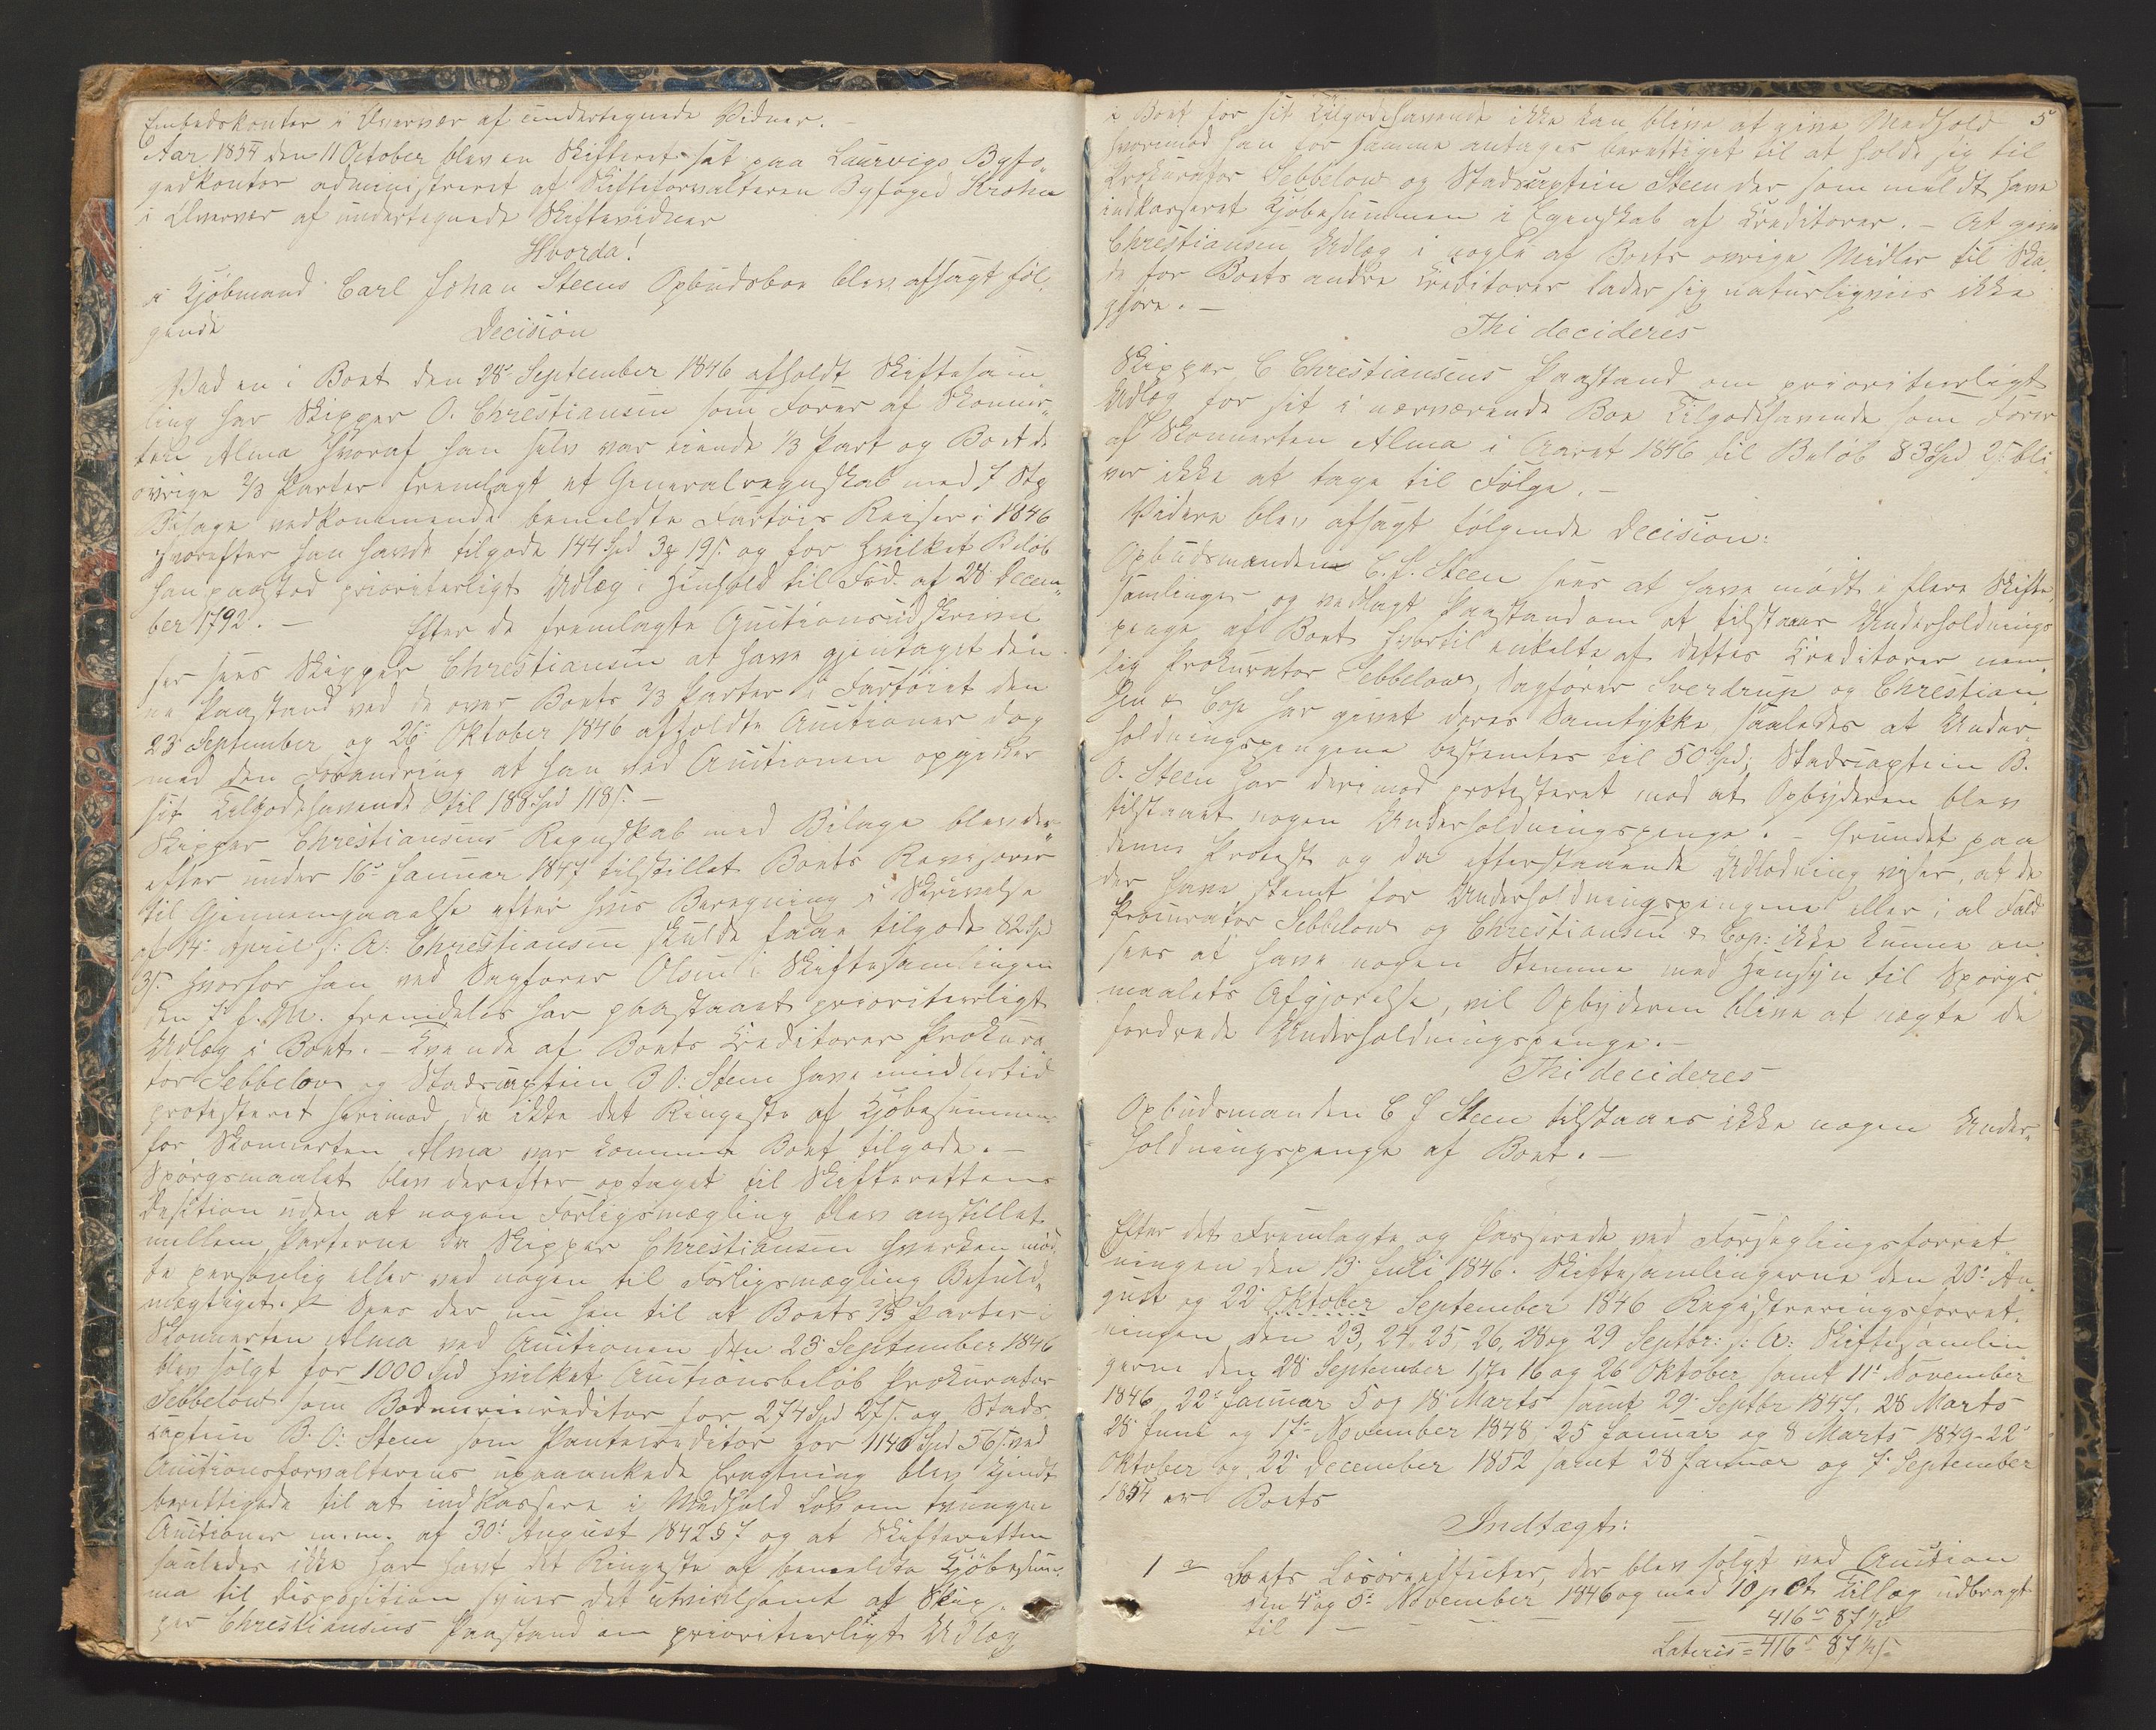 Embedskontor i Overvær af undertegnede Vidner. –
Aar 1854 den 11 October blev en Skifteret sat paa Laurvigs Byfo„
gedkontor administreret af Skifteforvalteren Byfoged Krohn
i Overvær af undertegnede Skiftevidner
Hvorda!
i Kjøbmand Carl Johan Steens Opbudsboe blev afsagt føl„
gende Decision
Ved en i Boet den 28de September 1846 afholdt Skiftesam„
ling har Skipper O. Christiansen som Fører af Skonner„
ten Alma hvoraf han selv var eiende 1/3 Part og Boet de
øvrige 2/3 Parter fremlagt et Generalregnskab med 7 Stk
Bilage vedkommende bemeldte Fartøis Reiser i 1846
hvorefter han havde tilgode 144 Spd 3 19 s. og for hvilket Beløb
han paastod prioriterligt Udlæg i Henhold til Frd. af 28 Decem„
ber 1792. – Efter de fremlagte Auctionsudskrivel
ser sees Skipper Christiansen at have gjentaget den
ne Paastand ved de over Boets 2/3 Parter i Fartøiet den
23 September og 26de Oktober 1846 afholdte Auctioner dog
med den Forandring at han ved Auctionen opgiver
sit Tilgodehavende til 188 Spd 118 s. –
Skipper Christiansens Regnskab med Bilage blev der„
efter under 16de Januar 1847 tilstillet Boets Revisorer
til Gjennemgaaelse efter hvis Beregning i Skrivelse
af 14de April s: A: Christiansen skulde have tilgode 82 Spd
3 s. hvorfor han ved Sagfører Olsen i Skiftesamlingen
den 7 f. M. fremdeles har paastaaet prioriterligt
Udlæg i Boet. – Tvende af Boets Kreditorer Prokura„
tor Sebbelow og Stadscaptein B O: Steen have imidlertid
protesteret herimod, da ikke det Ringeste af Kjøbesummen
for Skonnerten Alma var kommet Boet tilgode. –
Spørgsmaalet blev derefter optaget til Skifterettens
Decition uden at nogen Forligsmægling blev anstillet
mellem Parterne da Skipper Christiansen hverken mød„
te personlig eller ved nogen til Forligsmægling Befuld„
mægtiget. – Sees der nu hen til at Boets 2/3 Parter i
Skonnerten Alma ved Auctionen den 23 September 1846
blev solgt for 1000 Spd hvilket Auctionsbeløb Prokurator
Sebbelow som Bodmericreditor for 274 Spd 27 s. og Stads„
captein B. O: Steen som Pantecreditor for 1140 Spd 56 s. ved
Auctionsforvalterens upaaankede Eragtning blev kjendt
berettigede til at indkassere i Medhold Lov om tvungne
Auctioner m.m. af 30te August 1842 § 7 og at Skifteretten
saaledes ikke har havt det Ringeste af bemeldte Kjøbesum„
ma til Disposition synes det utvivlsomt at Skip„
per Christiansens Paastand om prioriterligt Udlæg
5
i Boet for sit Tilgodehavende ikke kan blive at give Medhold
hvorimod han for samme antages berettiget til at holde sig til
Prokurator Sebbelow og Stadscaptein Steen der som meldt have
indkasseret Kjøbesummen i Egenskab af Creditorer. – At give
Christiansen Udlæg i nogle af Boets øvrige Midler til Ska„
de for Boets andre Creditorer lader sig naturligviis ikke
gjøre. –
Thi decideres
Skipper C Christiansens Paastand om prioriterligt
Udlæg for sit i nærværende Boe Tilgodehavende som Fører
af Skonnerten Alma i Aaret 1846 til Beløb 83 Spd 2 s. bli„
ver ikke at tage til Følge. –
Videre blev afsagt følgende Decision:
Opbudsmanden C. J. Steen sees at have mødt i flere Skifte„
samlinger og nedlagt Paastand om at tilstaaes Underholdnings
penge af Boet hvortil enkelte af dettes Creditorer nem„
lig Prokurator Sebbelow, Sagfører Sverdrup og Christian„
sen & Cop har givet deres Samtykke, saaledes at Under„
holdningspengene bestemtes til 50 Spd; Stadscaptein B.
O. Steen har derimod protesteret mod at Opbyderen blev
tilstaaet nogen Underholdningspenge. – Grundet paa
denne Protest og da efterstaaende Udlodning viser, at de
der have stemt for Underholdningspengene eller i al Fald
Procurator Sebbelow og Christiansen & Cop: ikke kunne an
sees at have nogen Stemme med Hensyn til Spørgs„
maalets Afgjørelse, vil Opbyderen blive at nægte de
fordrede Underholdningspenge. –
Thi decideres
Opbudsmanden C J Steen tilstaaes ikke nogen Under„
holdningspenge af Boet. –
Efter det Fremlagte og Passerede ved Forseglingsforret„
ningen den 13 Juli 1846. Skiftesamlingerne den 20de Au„
gust og 22de Oktober September 1846 Registreringsforret„
ningen den 23, 24, 25, 26, 28 og 29 Septbr: s: A: Skiftesamlin
gerne den 28 September 1ste 16 og 26 Oktober, samt 11te November
1846, 22de Januar 5 og 18 Marts samt 29 Septbr 1847, 28 Marts
28 Juni og 17de November 1848, 25 Januar og 8 Marts 1849 – 22de
Oktober og 22de December 1852 samt 28 Januar og 7 September
1854 er Boets
Indtægt:
1 a Boets Løsøreeffecter, der blev solgt ved Auction
den 4de og 5te November 1846 og med 10 p Ct. Tillæg udbragt
til – – – 416 „ 87 1/2 s
Lateris = 416 „ 87 1/2 s.